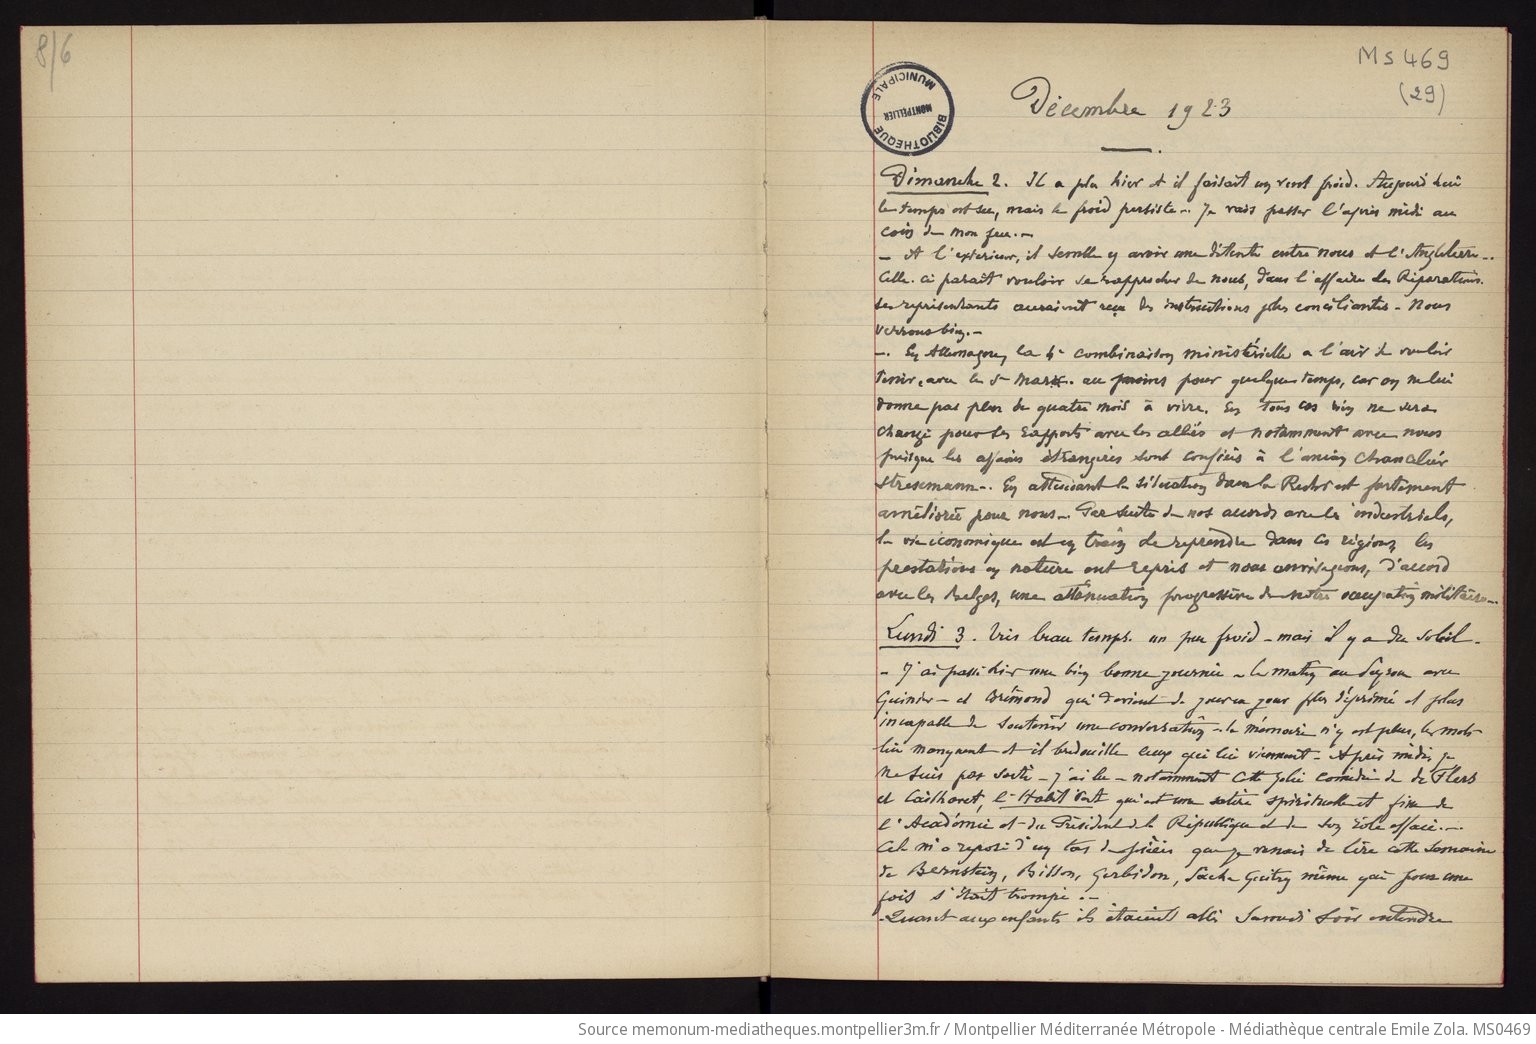 8/6
Ms 469
(29)
BIBLIOTHEQUE MUNICIPALE MONTPELLIER
Décembre 1923
Dimanche 2. Il a plu hier et il faisait un vent froid. Aujourd'hui
le temps est sec, mais le froid persiste - Je vais passer l'après midi au
coin de mon feu. -
- A l'extérieur, il semble y avoir une détente entre nous et l'Angleterre -.
Celle-ci paraît vouloir se rapprocher de nous, dans l'affaire des Réparations.
Ses représentants auraient reçu des instructions plus conciliantes - Nous
verrons bien. -
- En Allemagne, la 4e combinaison ministérielle a l'air de vouloir
tenir, avec le Dr Marx. au moins pour quelque temps, car on ne lui
donne pas plus de quatre mois à vivre. En tous cas rien ne sera
changé pour les rapports avec les alliés et notamment avec nous
puisque les affaires étrangères sont confiées à l'ancien Chancelier
Stresemann -. En attendant la situation dans la Ruhr est fortement
améliorée pour nous -. Par suite de nos accords avec les industriels,
la vie économique est en train de reprendre dans ces régions, les
prestations en nature ont repris et nous envisageons, d'accord
avec les Belges, une atténuation progressive de notre occupation militaire -.
Lundi 3. Très beau temps. un peu froid - mais il y a du soleil -
- J'ai passé hier une bien bonne journée - le matin au Peyrou avec
Guinier - et Brémond qui devient de jour en jour plus déprimé et plus
incapable de soutenir une conversation - la mémoire n'y est plus, les mots
lui manquent et il bredouille ceux qui lui viennent - Après midi je
ne suis pas sorti - j'ai lu - notamment cette jolie comédie de de Flers
et Caillavet, l'Habit Vert qui est une satire spirituelle et fine de
l'Académie et du Président de la République et de son rôle effacé. -
Cela m'a reposé d'un tas de pièces que je venais de lire cette semaine
de Bernstein, Bisson, Gerbidon, Sacha Guitry même qui pour une
fois s'était trompé. -
- Quant aux enfants ils étaient allés Samedi soir entendre
Source memonum-mediatheques.montpellier3m.fr / Montpellier Méditerranée Métropole - Médiathèque centrale Emile Zola. MS0469